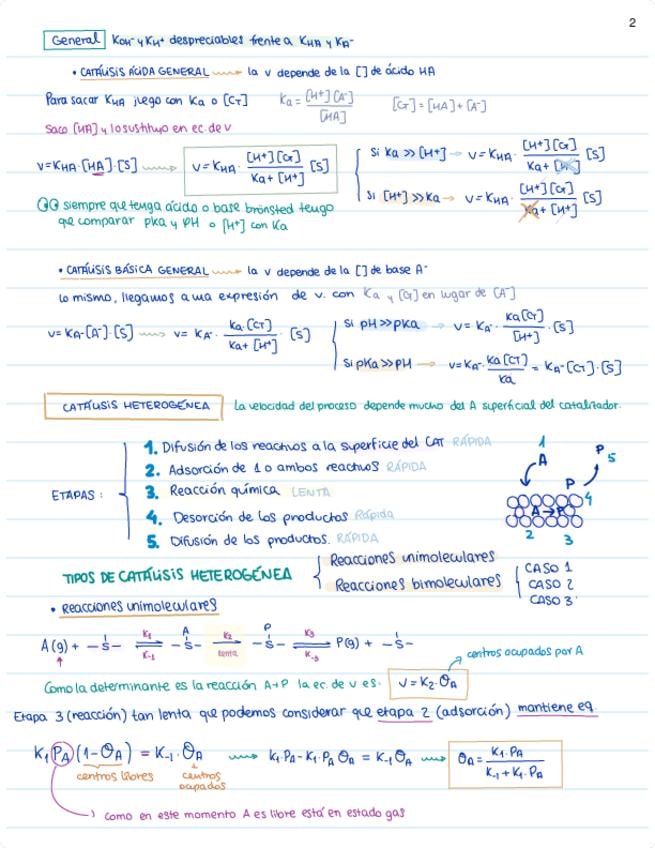 2
General KOH- y KH+ despreciables frente a KHA y KA-
• CATÁLISIS ÁCIDA GENERAL → la v depende de la [] de ácido HA
Para sacar KHA juego con Ka o [CT] Ka = [H+][A-] / [HA] [CT] = [HA] + [A-]
Saco [HA] y lo sustituyo en ec. de v
V = KHA · [HA] · [S] → V = KHA · [H+][CT] / Ka + [H+] [S]
Si Ka >> [H+] → V = KHA · [H+][CT] / Ka + [H+] [S]
Si [H+] >> Ka → V = KHA · [H+][CT] / Ka + [H+] [S]
siempre que tenga ácido o base brönsted tengo
que comparar pka y pH o [H+] con Ka
• CATÁLISIS BÁSICA GENERAL → la v depende de la [] de base A-
Lo mismo, llegamos a una expresión de v. con Ka y [CT] en lugar de [A-]
V = KA- [A-] · [S] → V = KA- · Ka · [CT] / Ka + [H+] · [S]
Si pH >> pKa → V = KA- · Ka [CT] / [H+] · [S]
Si pKa >> pH → V = KA- · Ka [CT] / Ka = KA- [CT] · [S]
CATÁLISIS HETEROGÉNEA La velocidad del proceso depende mucho del A superficial del catalizador.
ETAPAS:
1. Difusión de los reactivos a la superficie del CAT RÁPIDA
2. Adsorción de 1 o ambos reactivos RÁPIDA
3. Reacción química LENTA
4. Desorción de los productos Rápida
5. Difusión de los productos. RÁPIDA
1 A P 5
P 4
A → P
2 3
TIPOS DE CATÁLISIS HETEROGÉNEA
Reacciones unimoleculares
Reacciones bimoleculares
CASO 1
CASO 2
CASO 3
• Reacciones unimoleculares
A(g) + -S- ⇌ K1 K-1 A -S- K2 lenta → P -S- ⇌ K3 K-3 P(g) + -S-
centros ocupados por A
Como la determinante es la reacción A→P la ec. de v es: V = K2 · ΘA
Etapa 3 (reacción) tan lenta que podemos considerar que etapa 2 (adsorción) mantiene eq.
K1 PA (1 - ΘA) = K-1 · ΘA → K1 · PA - K1 · PA ΘA = K-1 ΘA → ΘA = K1 · PA / K-1 + K1 · PA
centros libres centros ocupados
como en este momento A es libre está en estado gas